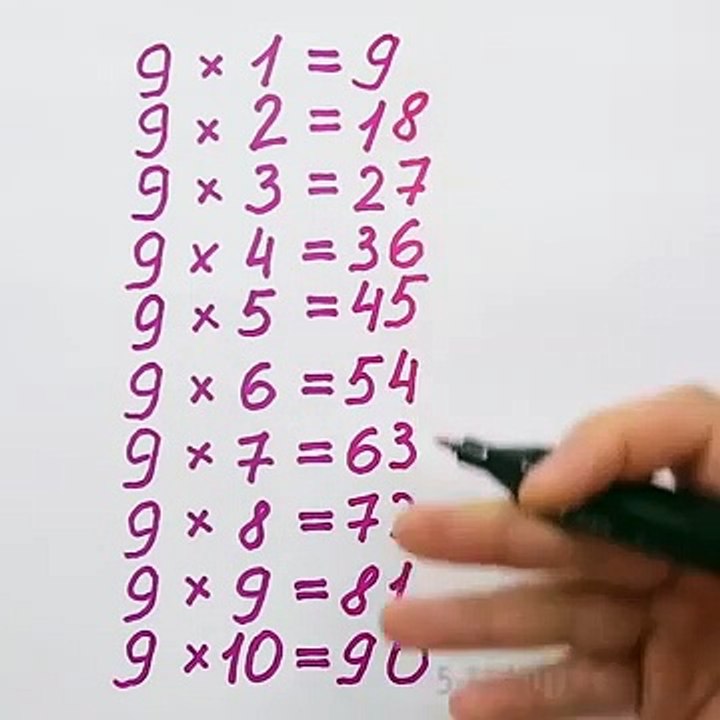 9 × 1 = 9
9 × 2 = 18
9 × 3 = 27
9 × 4 = 36
9 × 5 = 45
9 × 6 = 54
9 × 7 = 63
9 × 8 = 7
9 × 9 = 81
9 × 10 = 90